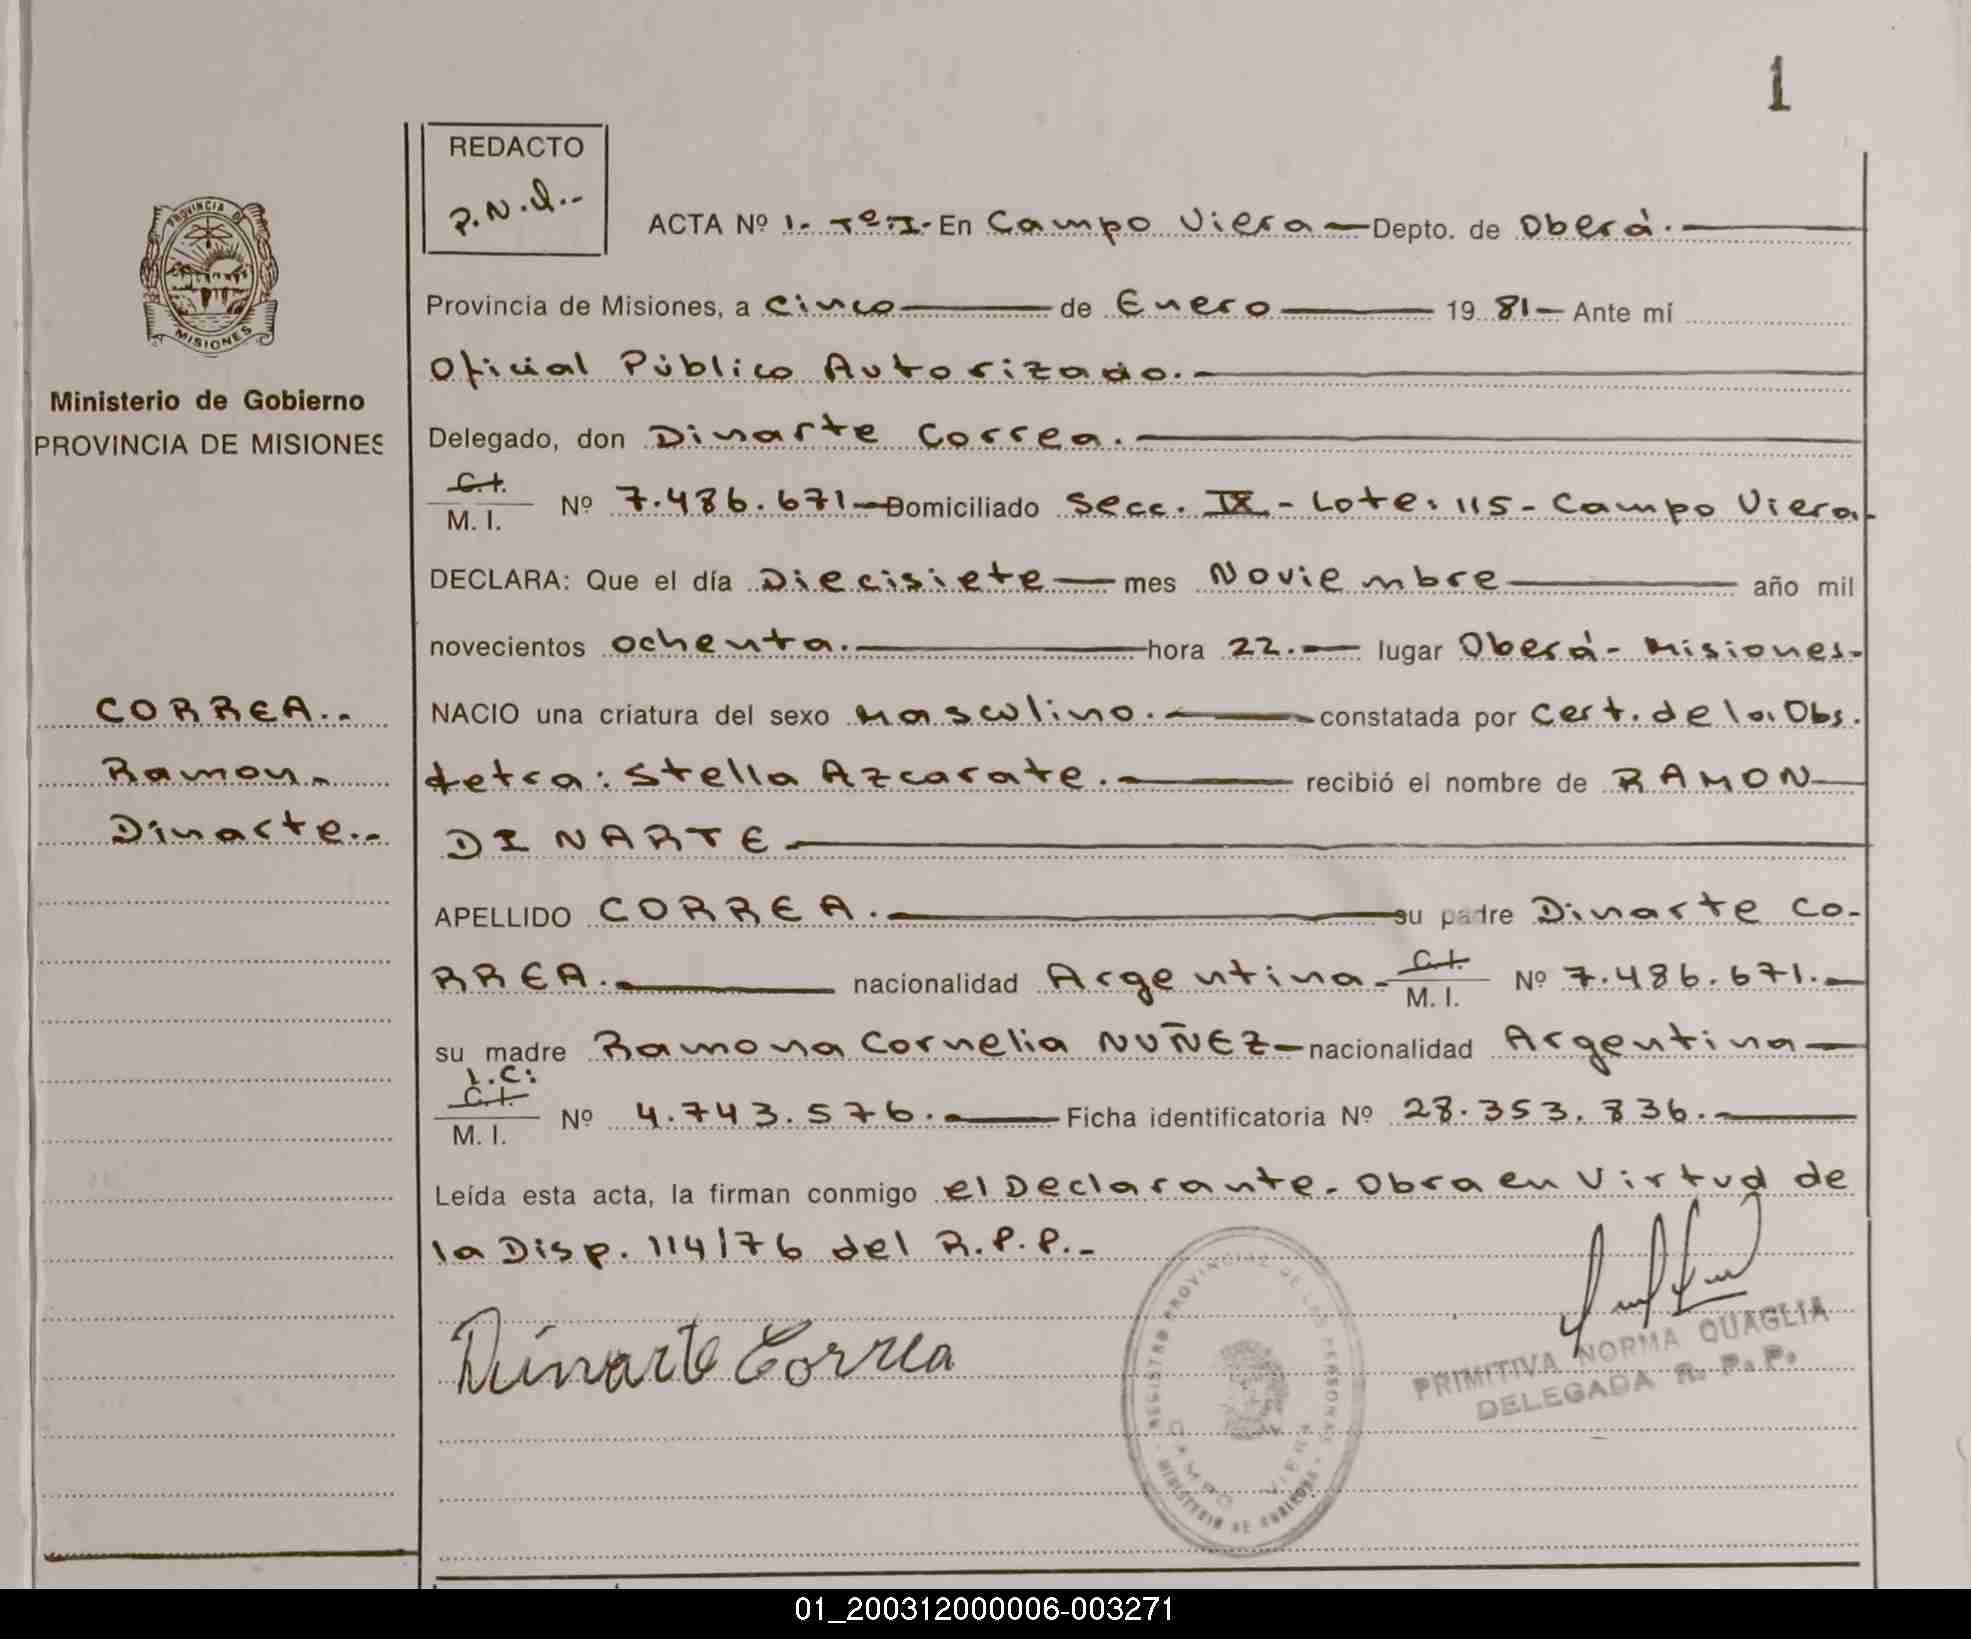 1
REDACTO
P.N.Q.-
PROVINCIA DE
MISIONES
Ministerio de Gobierno
PROVINCIA DE MISIONES
CORREA.-
Ramon.-
Dinarte.-
ACTA Nº 1. Tº.I. En Campo Viera — Depto. de Oberá.
Provincia de Misiones, a Cinco — de Enero — 19 81 — Ante mí
Oficial Público Autorizado.
Delegado, don Dinarte Correa.
C.I.
M. I. Nº 7.486.671 — Domiciliado Secc. IX - Lote: 115 - Campo Viera.
DECLARA: Que el día Diecisiete — mes Noviembre — año mil
novecientos ochenta. — hora 22. — lugar Oberá - Misiones-
NACIO una criatura del sexo Masculino. — constatada por Cert. de la Obs.
tetra: Stella Azcarate. — recibió el nombre de RAMON
DINARTE
APELLIDO CORREA. — su padre Dinarte CO-
RREA. — nacionalidad Argentina. C.I. M. I. Nº 7.486.671.
su madre Ramona Cornelia NUÑEZ — nacionalidad Argentina
L.C:
C.I.
M. I. Nº 4.743.576. — Ficha identificatoria Nº 28.353.836.
Leída esta acta, la firman conmigo el Declarante. Obra en Virtud de
la Disp. 114/76 del R.P.P.-
Dinarte Correa
REGISTRO PROVINCIAL DE LAS PERSONAS
CAMPO VIERA
MINISTERIO DE GOBIERNO
PRIMITIVA NORMA QUAGLIA
DELEGADA R. P. P.
01_200312000006-003271